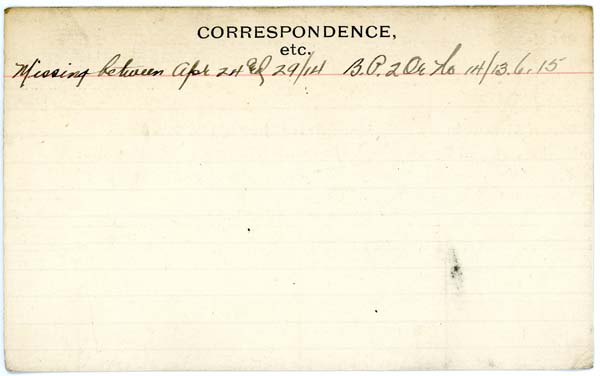 CORRESPONDENCE,
etc.
Missing between Apr 24 & 29/14 B.P. 2 Or No 14/13.6.15